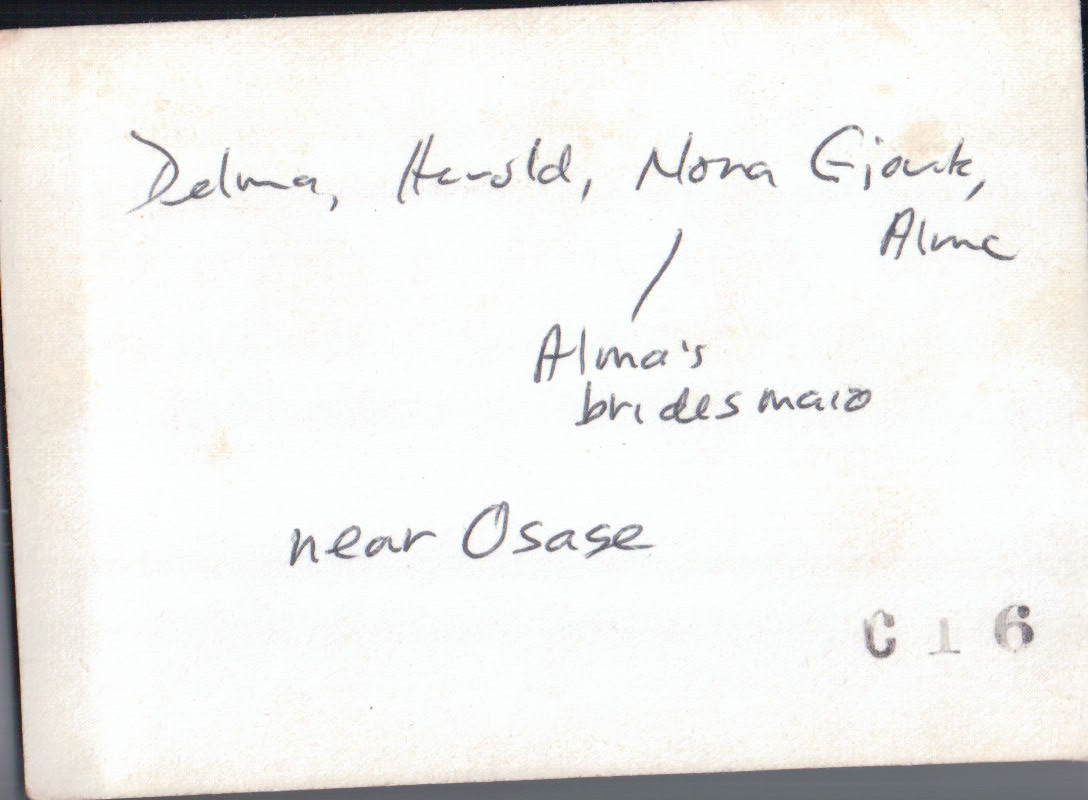 Delma, Harold, Nora
Alma
Alma's
bridesmaid
near Osage
C 1 6